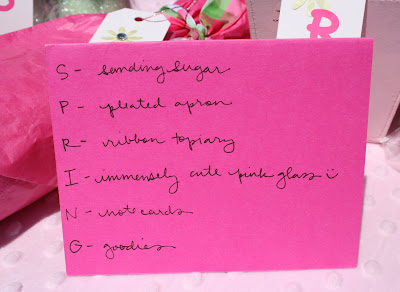 R
S - sending sugar
P - pleated apron
R - ribbon topiary
I - immensely cute pink glass :)
N - note cards
G - goodies